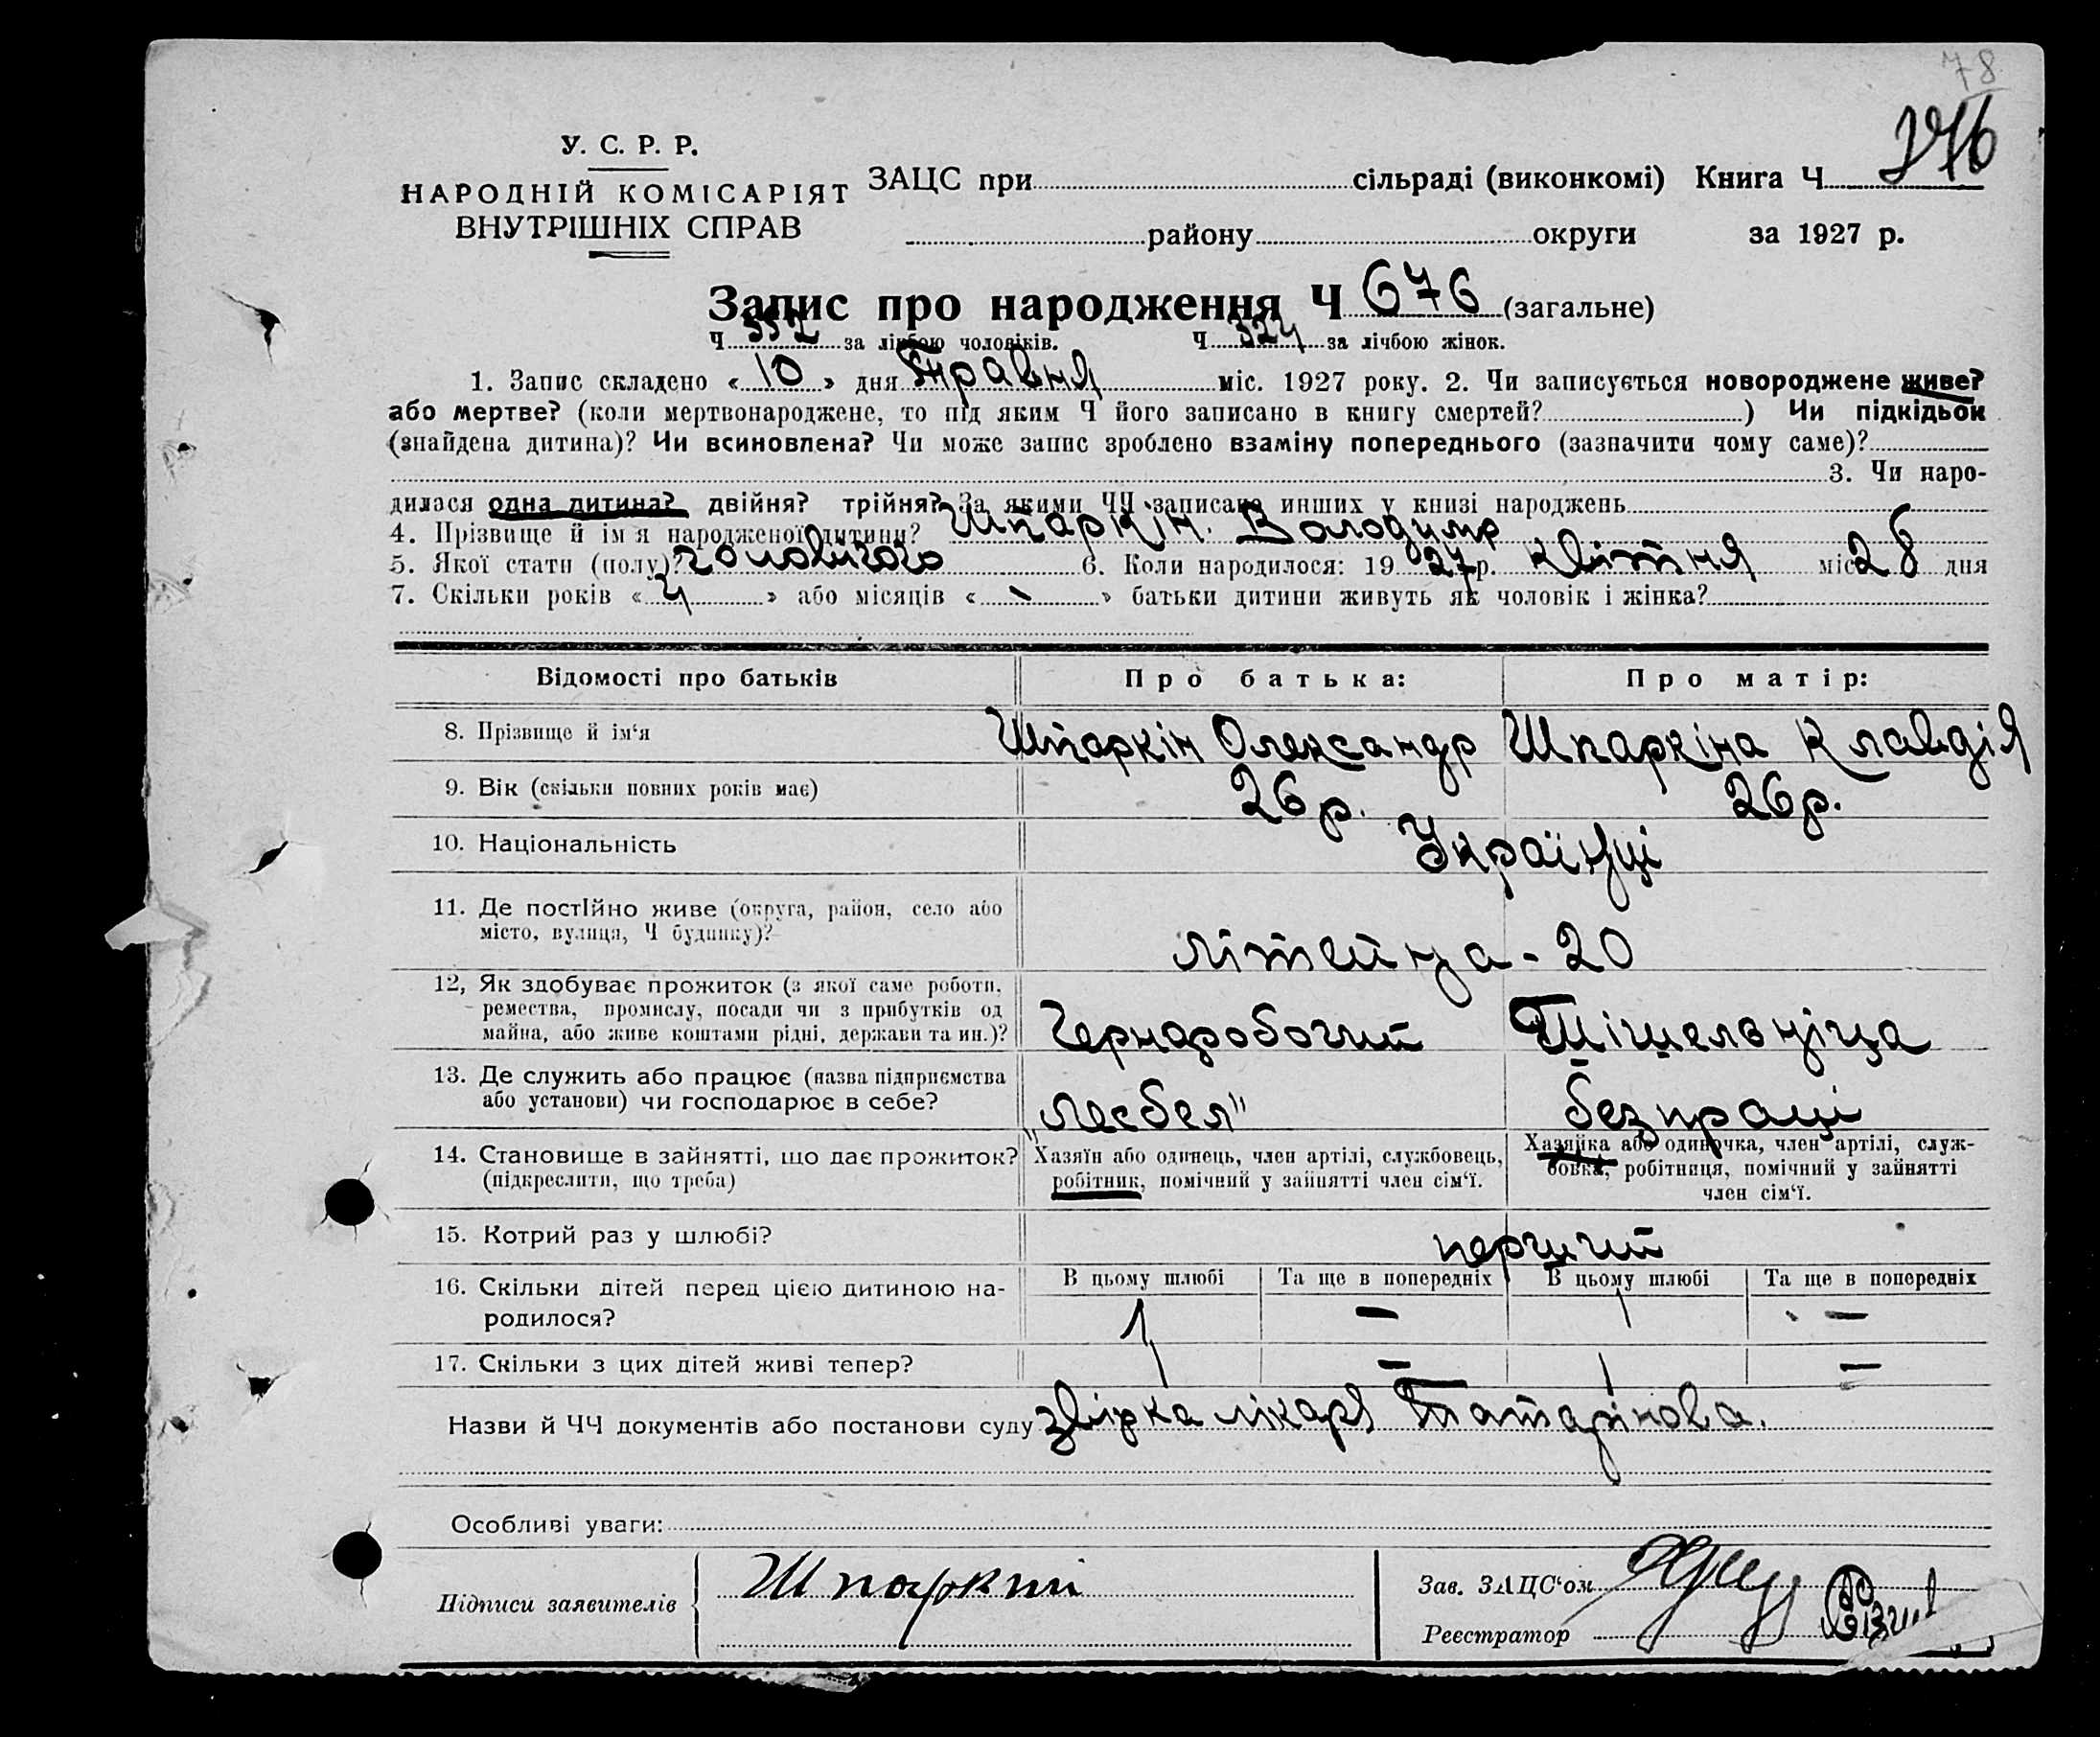 78
276
У. С. Р. Р.
НАРОДНІЙ КОМІСАРІЯТ
ВНУТРІШНІХ СПРАВ
ЗАЦС при сільраді (виконкомі) Книга Ч
району округи за 1927 р.
Запис про народження Ч 676 (загальне)
Ч 352 за лічбою чоловіків. Ч 324 за лічбою жінок.
1. Запис складено « 10 » дня Травня міс. 1927 року. 2. Чи записується новороджене живе?
або мертве? (коли мертвонароджене, то під яким Ч його записано в книгу смертей? ) Чи підкідьок
(знайдена дитина)? Чи всиновлена? Чи може запис зроблено взаміну попереднього (зазначити чому саме)?
3. Чи наро-
дилася одна дитина? двійня? трійня? За якими ЧЧ записано инших у книзі народжень
4. Прізвище й ім'я народженої дитини? Шпаркін Володимр
5. Якої стати (полу)? чоловічого 6. Коли народилося: 19 27 р. квітня міс 28 дня
7. Скільки років « 4 » або місяців « \ » батьки дитини живуть як чоловік і жінка?
Відомості про батьків Про батька: Про матір:
8. Прізвище й ім‘я Шпаркін Олександр Шпаркіна Клавдія
9. Вік (скільки повних років має) 26 р. 26 р.
10. Національність Українці
11. Де постІйно живе (округа, район, село або
місто, вулиця, Ч будинку)? Літейна - 20
12, Як здобуває прожиток (з якої саме роботи,
ремества, промислу, посади чи з прибутків од
майна, або живе коштами рідні, держави та ин.)? Чернаробочий
13. Де служить або працює (назва підприємства
або установи) чи господарює в себе? „Лесбел" без праці
14. Становище в зайнятті, що дає прожиток?
(підкреслити, що треба)
Хазяїн або одинець, член артілі, службовець,
робітник, помічний у зайнятті член сім‘ї.
Хазяйка або одиночка, член артілі, служ-
бовка, робітниця, помічний у зайнятті
член сім‘ї.
15. Котрий раз у шлюбі? перший
16. Скільки дітей перед цією дитиною на-
родилося?
В цьому шлюбі Та ще в попередніх В цьому шлюбі Та ще в попередніх
1 — 1 —
17. Скільки з цих дітей живі тепер? 1 — 1 —
Назви й ЧЧ документів або постанови суду звірка лікаря Татарінова.
Особливі уваги:
Підписи заявителів Шпаркин
Зав. ЗАЦС‘ом
Реєстратор